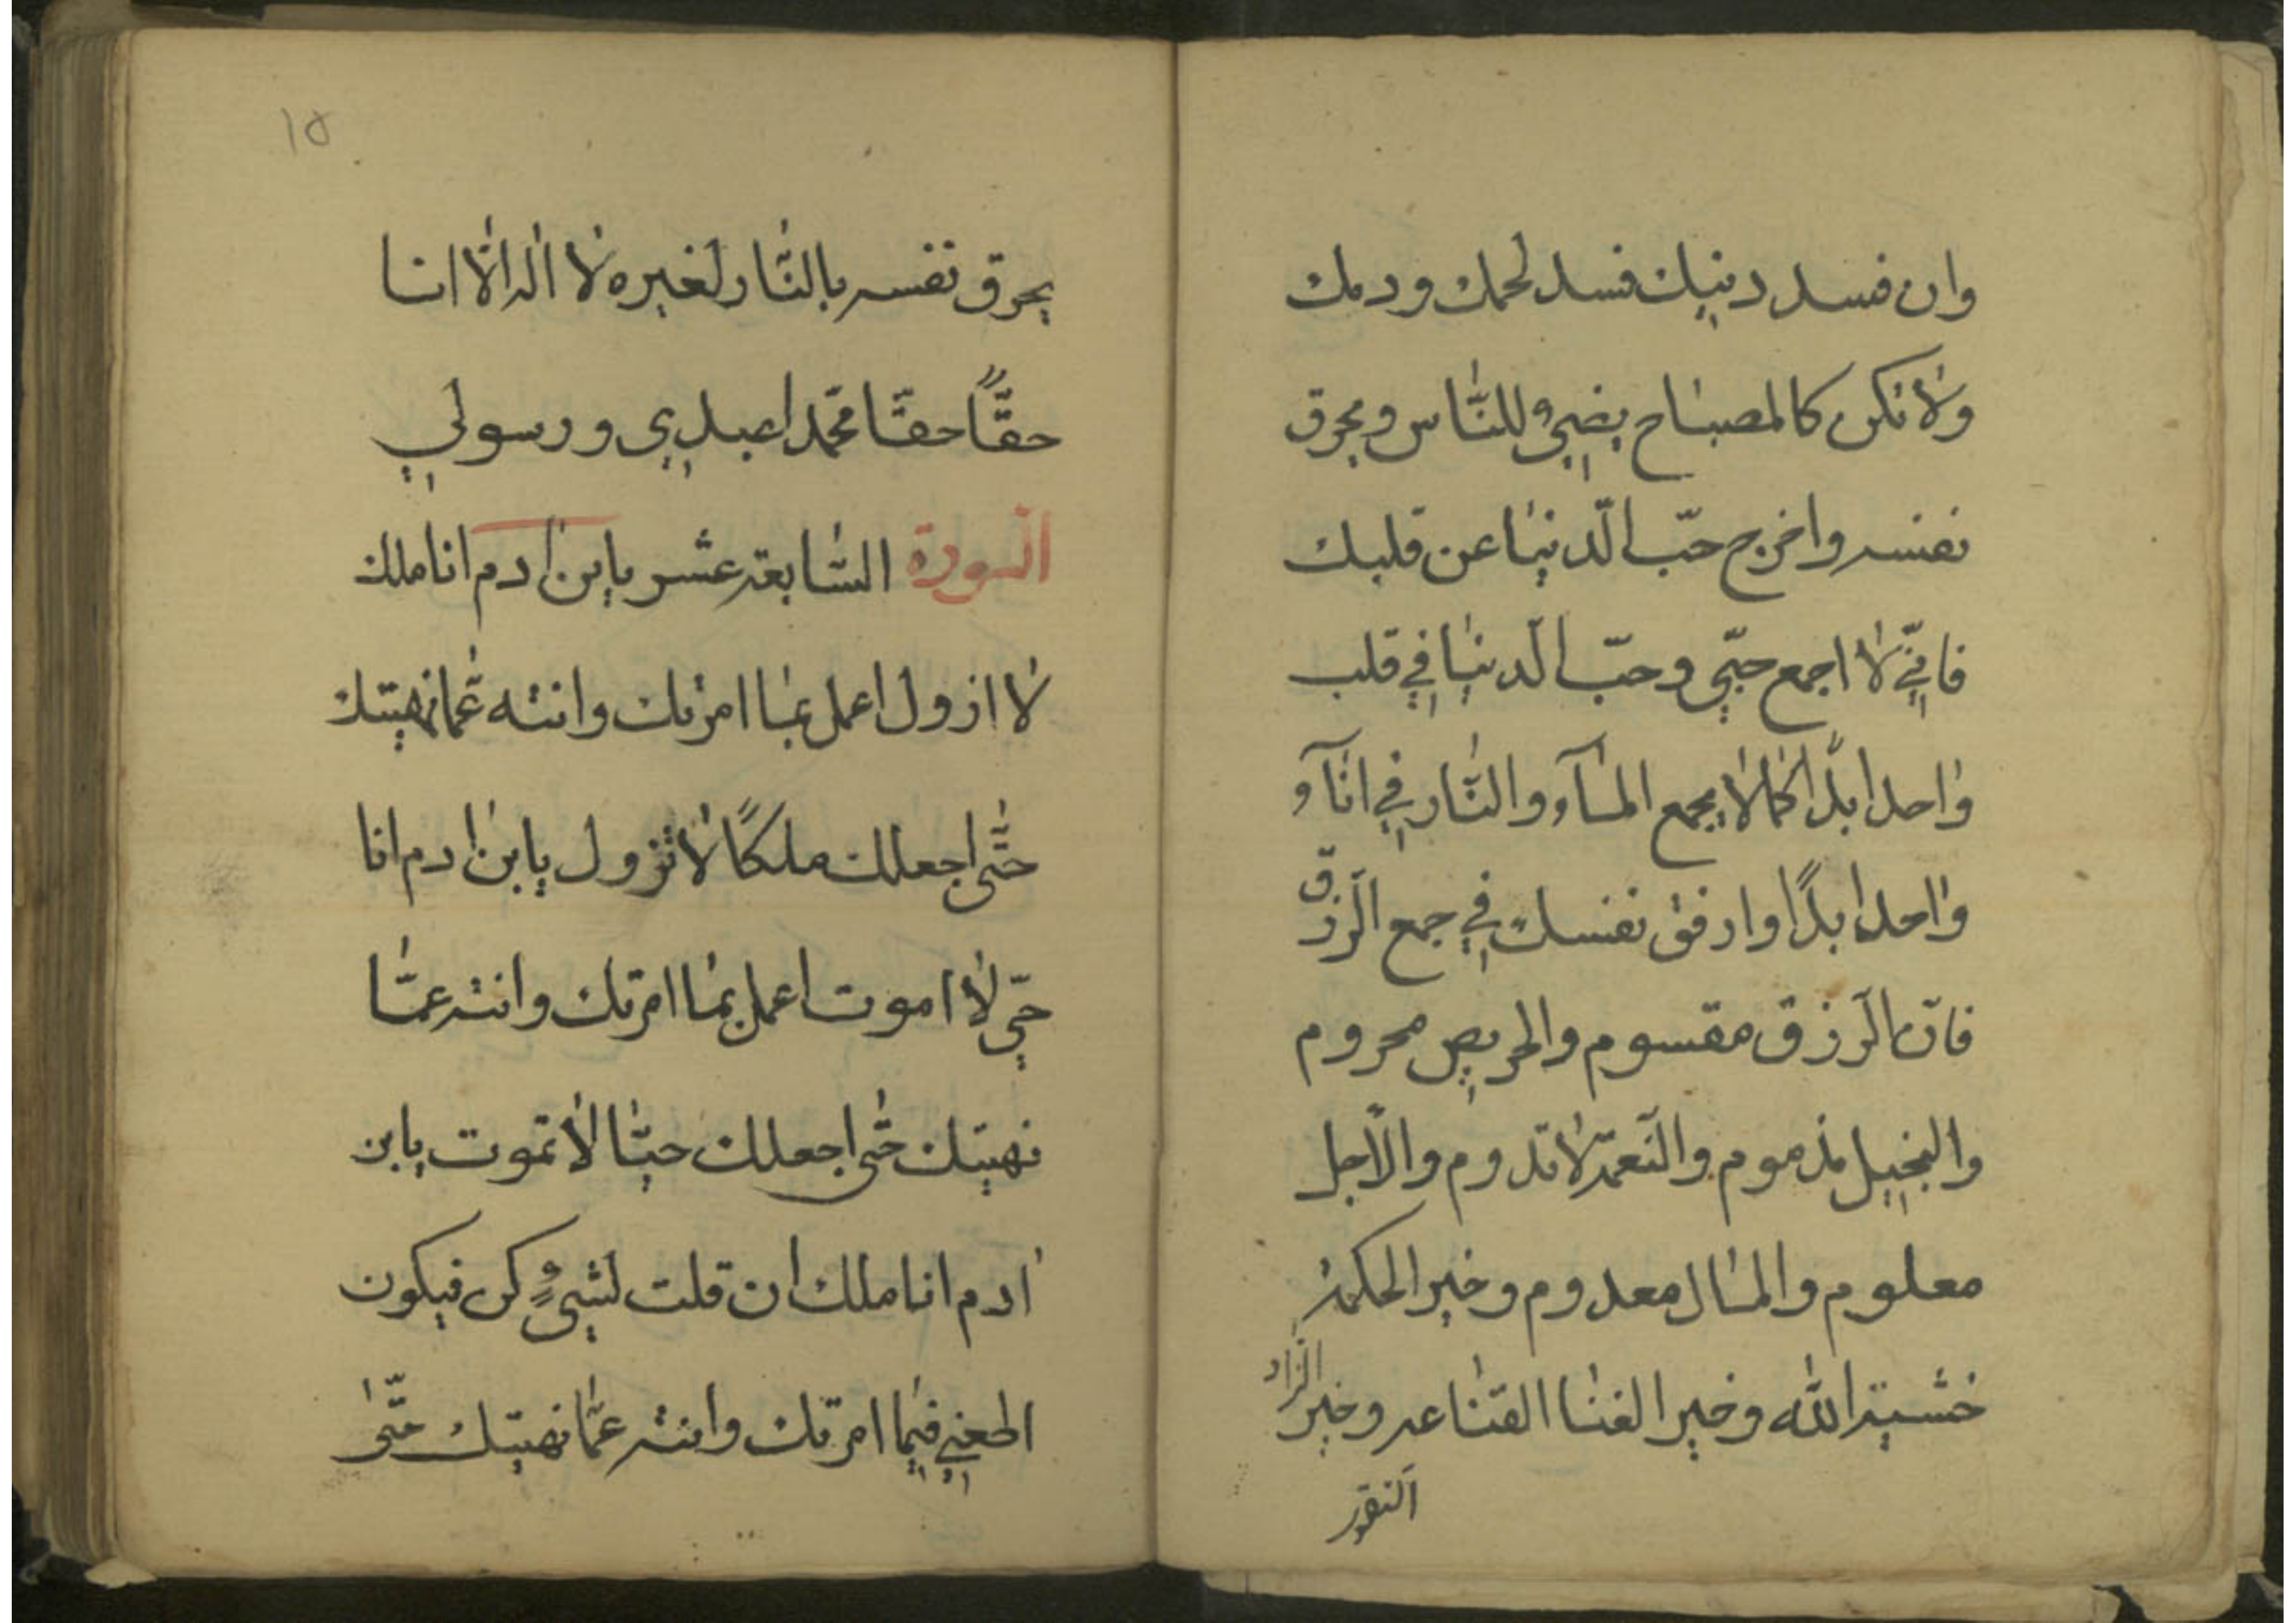 وان فسد دينك فسد لحمك ودمك
ولا تكن كالمصباح يضيئ للناس ويحرق
نفسه واخرج حبّ الدّنيا عن قلبك
فانّي لا اجمع حبّي وحبّ الدّنيا في قلب
واحد ابدًا كما لا يجمع المآء والنّار في اناآء
واحد ابدًا وارفق نفسك في جمع الرّزق
فانّ الرّزق مقسوم والحريص محروم
والبخيل مذموم والنّعمة لا تدوم والاجل
معلوم والمال معدوم وخير الحكمة
خشية الله وخير الغنا القناعه وخير الزّاد
التقوى
١٥
يحرق نفسه بالنّار لغيره لا اله الّا انا
حقًّا حقّا محمّد اعبدي ورسولي
السورة السّابعة عشر يابن ادم انا ملك
لا ازول اعمل بما امرتك وانته عمّا نهيتك
حتّى اجعلك ملكًا لا تزول يابن ادم انا
حيّ لا اموت اعمل بما امرتك وانته عمّا
نهيتك حتّى اجعلك حيّا لا تموت يابن
ادم انا ملك ان قلت لشيءٍ كن فيكون
اطعني فيما امرتك وانته عمّا نهيتك حتّى